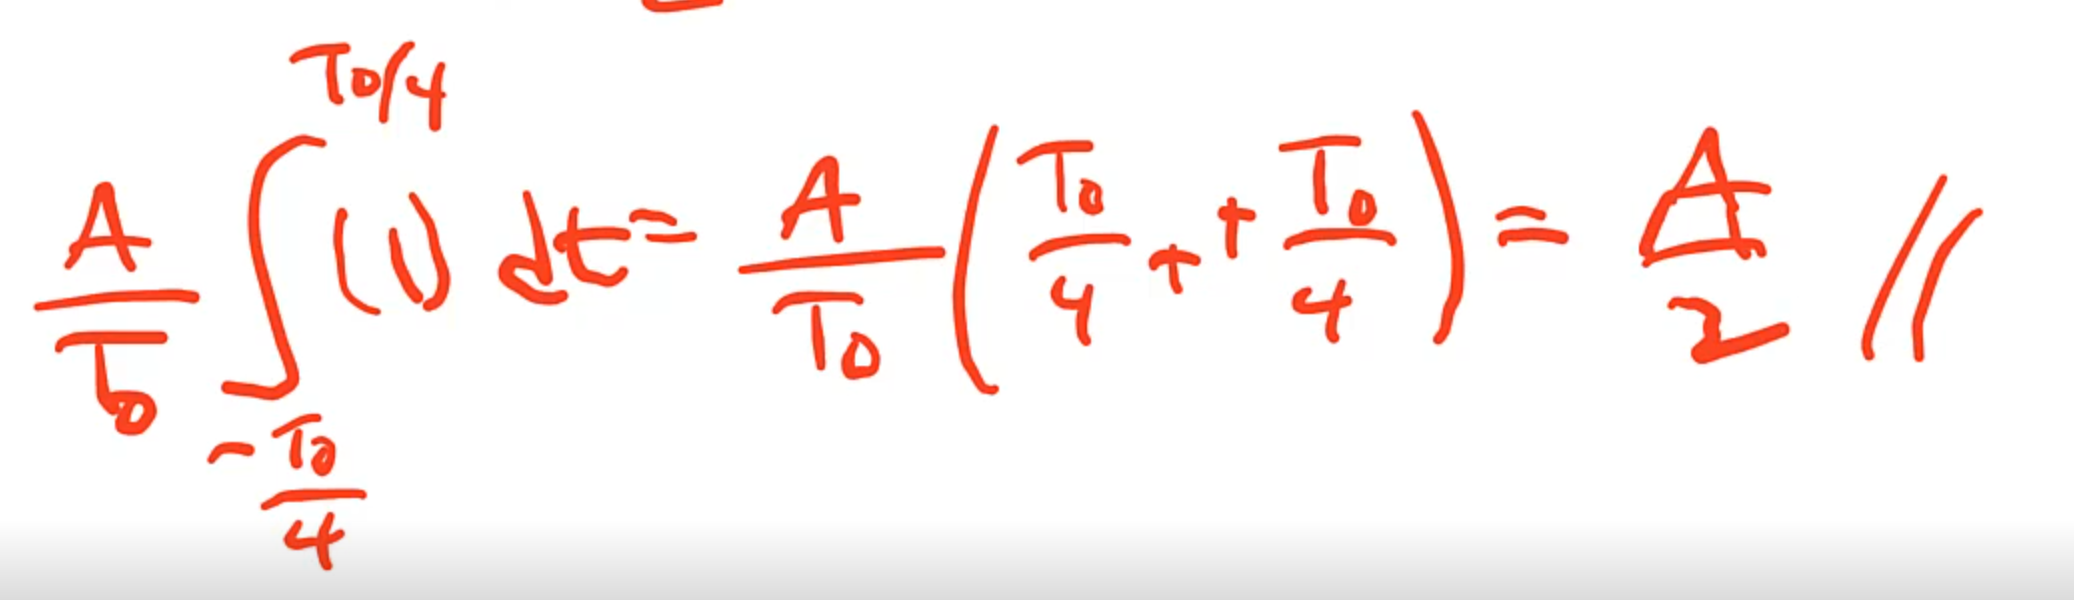 A/T₀ ∫_{-T₀/4}^{T₀/4} (1) dt = A/T₀ (T₀/4 + + T₀/4) = A/2 //